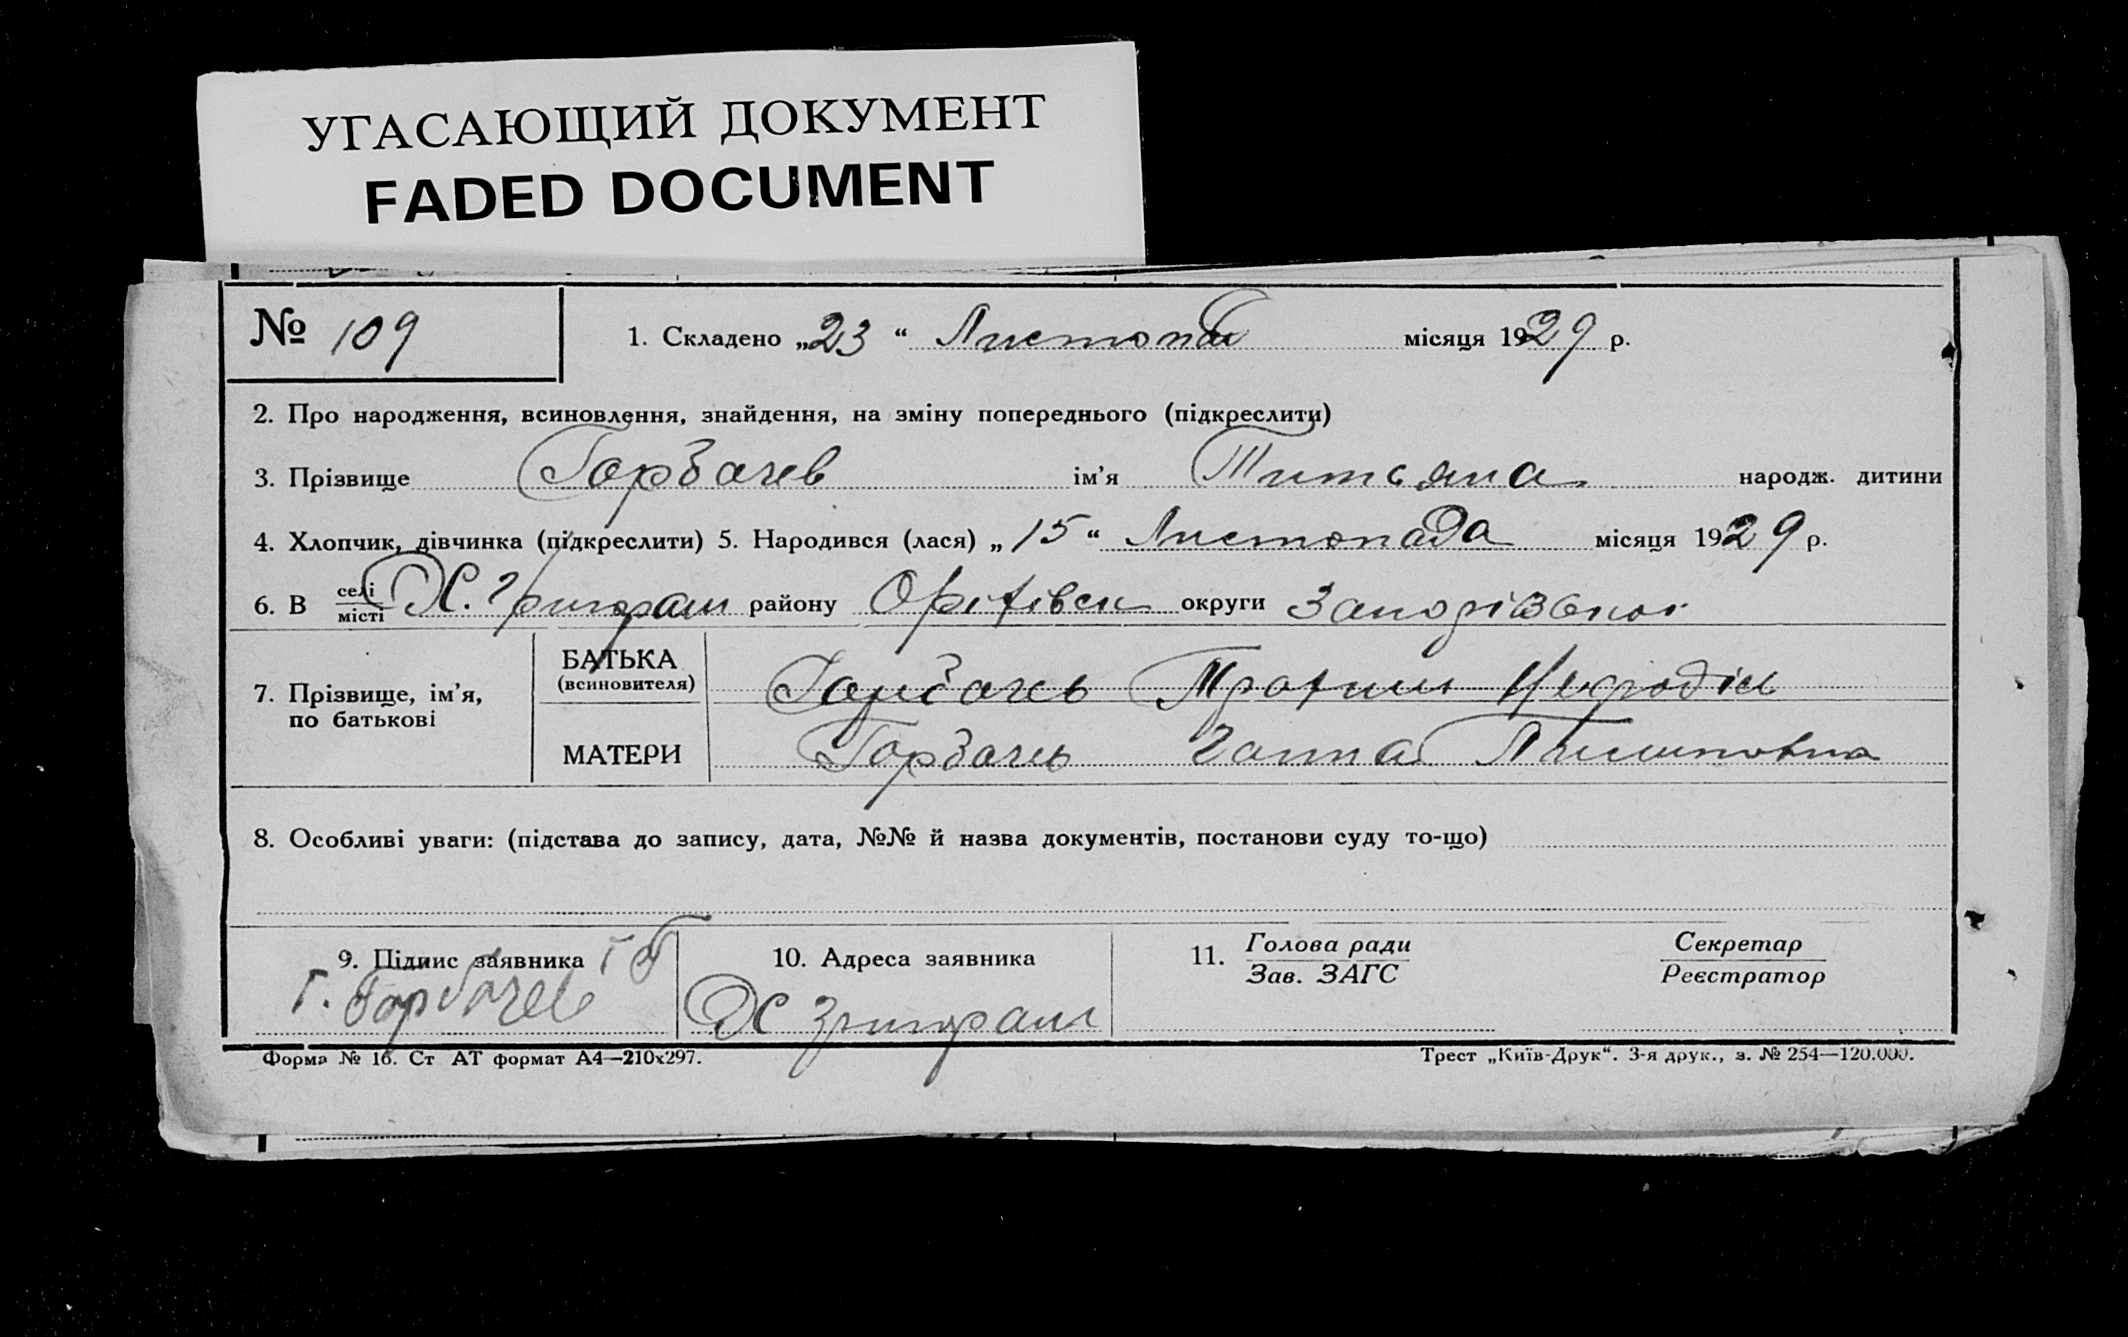 УГАСАЮЩИЙ ДОКУМЕНТ
FADED DOCUMENT
№ 109
1. Складено „23“ Листопад місяця 1929 р.
2. Про народження, всиновлення, знайдення, на зміну попереднього (підкреслити)
3. Прізвище Горбачев ім’я Титьяна народж. дитини
4. Хлопчик, дівчинка (підкреслити) 5. Народився (лася) „15“ Листопада місяця 1929 р.
6. В селі місті Х. району Оріхівськ округи
7. Прізвище, ім’я, по батькові
БАТЬКА (всиновителя) Горбачев Трохим
МАТЕРИ Горбачев Ганна
8. Особливі уваги: (підстава до запису, дата, №№ й назва документів, постанови суду то-що)
9. Підпис заявника
Г. Горбачев
10. Адреса заявника
11. Голова ради
Зав. ЗАГС
Секретар
Реєстратор
Форма № 16. Ст АТ формат А4—210х297.
Трест „Київ-Друк“. 3-я друк., з. № 254—120.000.